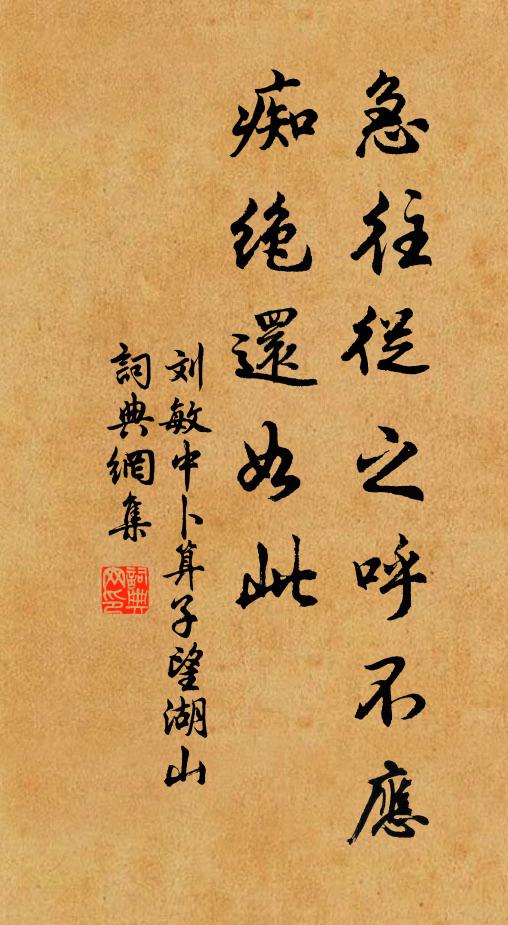 急往從之呼不應
痴絶還如此
刘敏中卜算子望湖山
詞典網集
詞典
网印